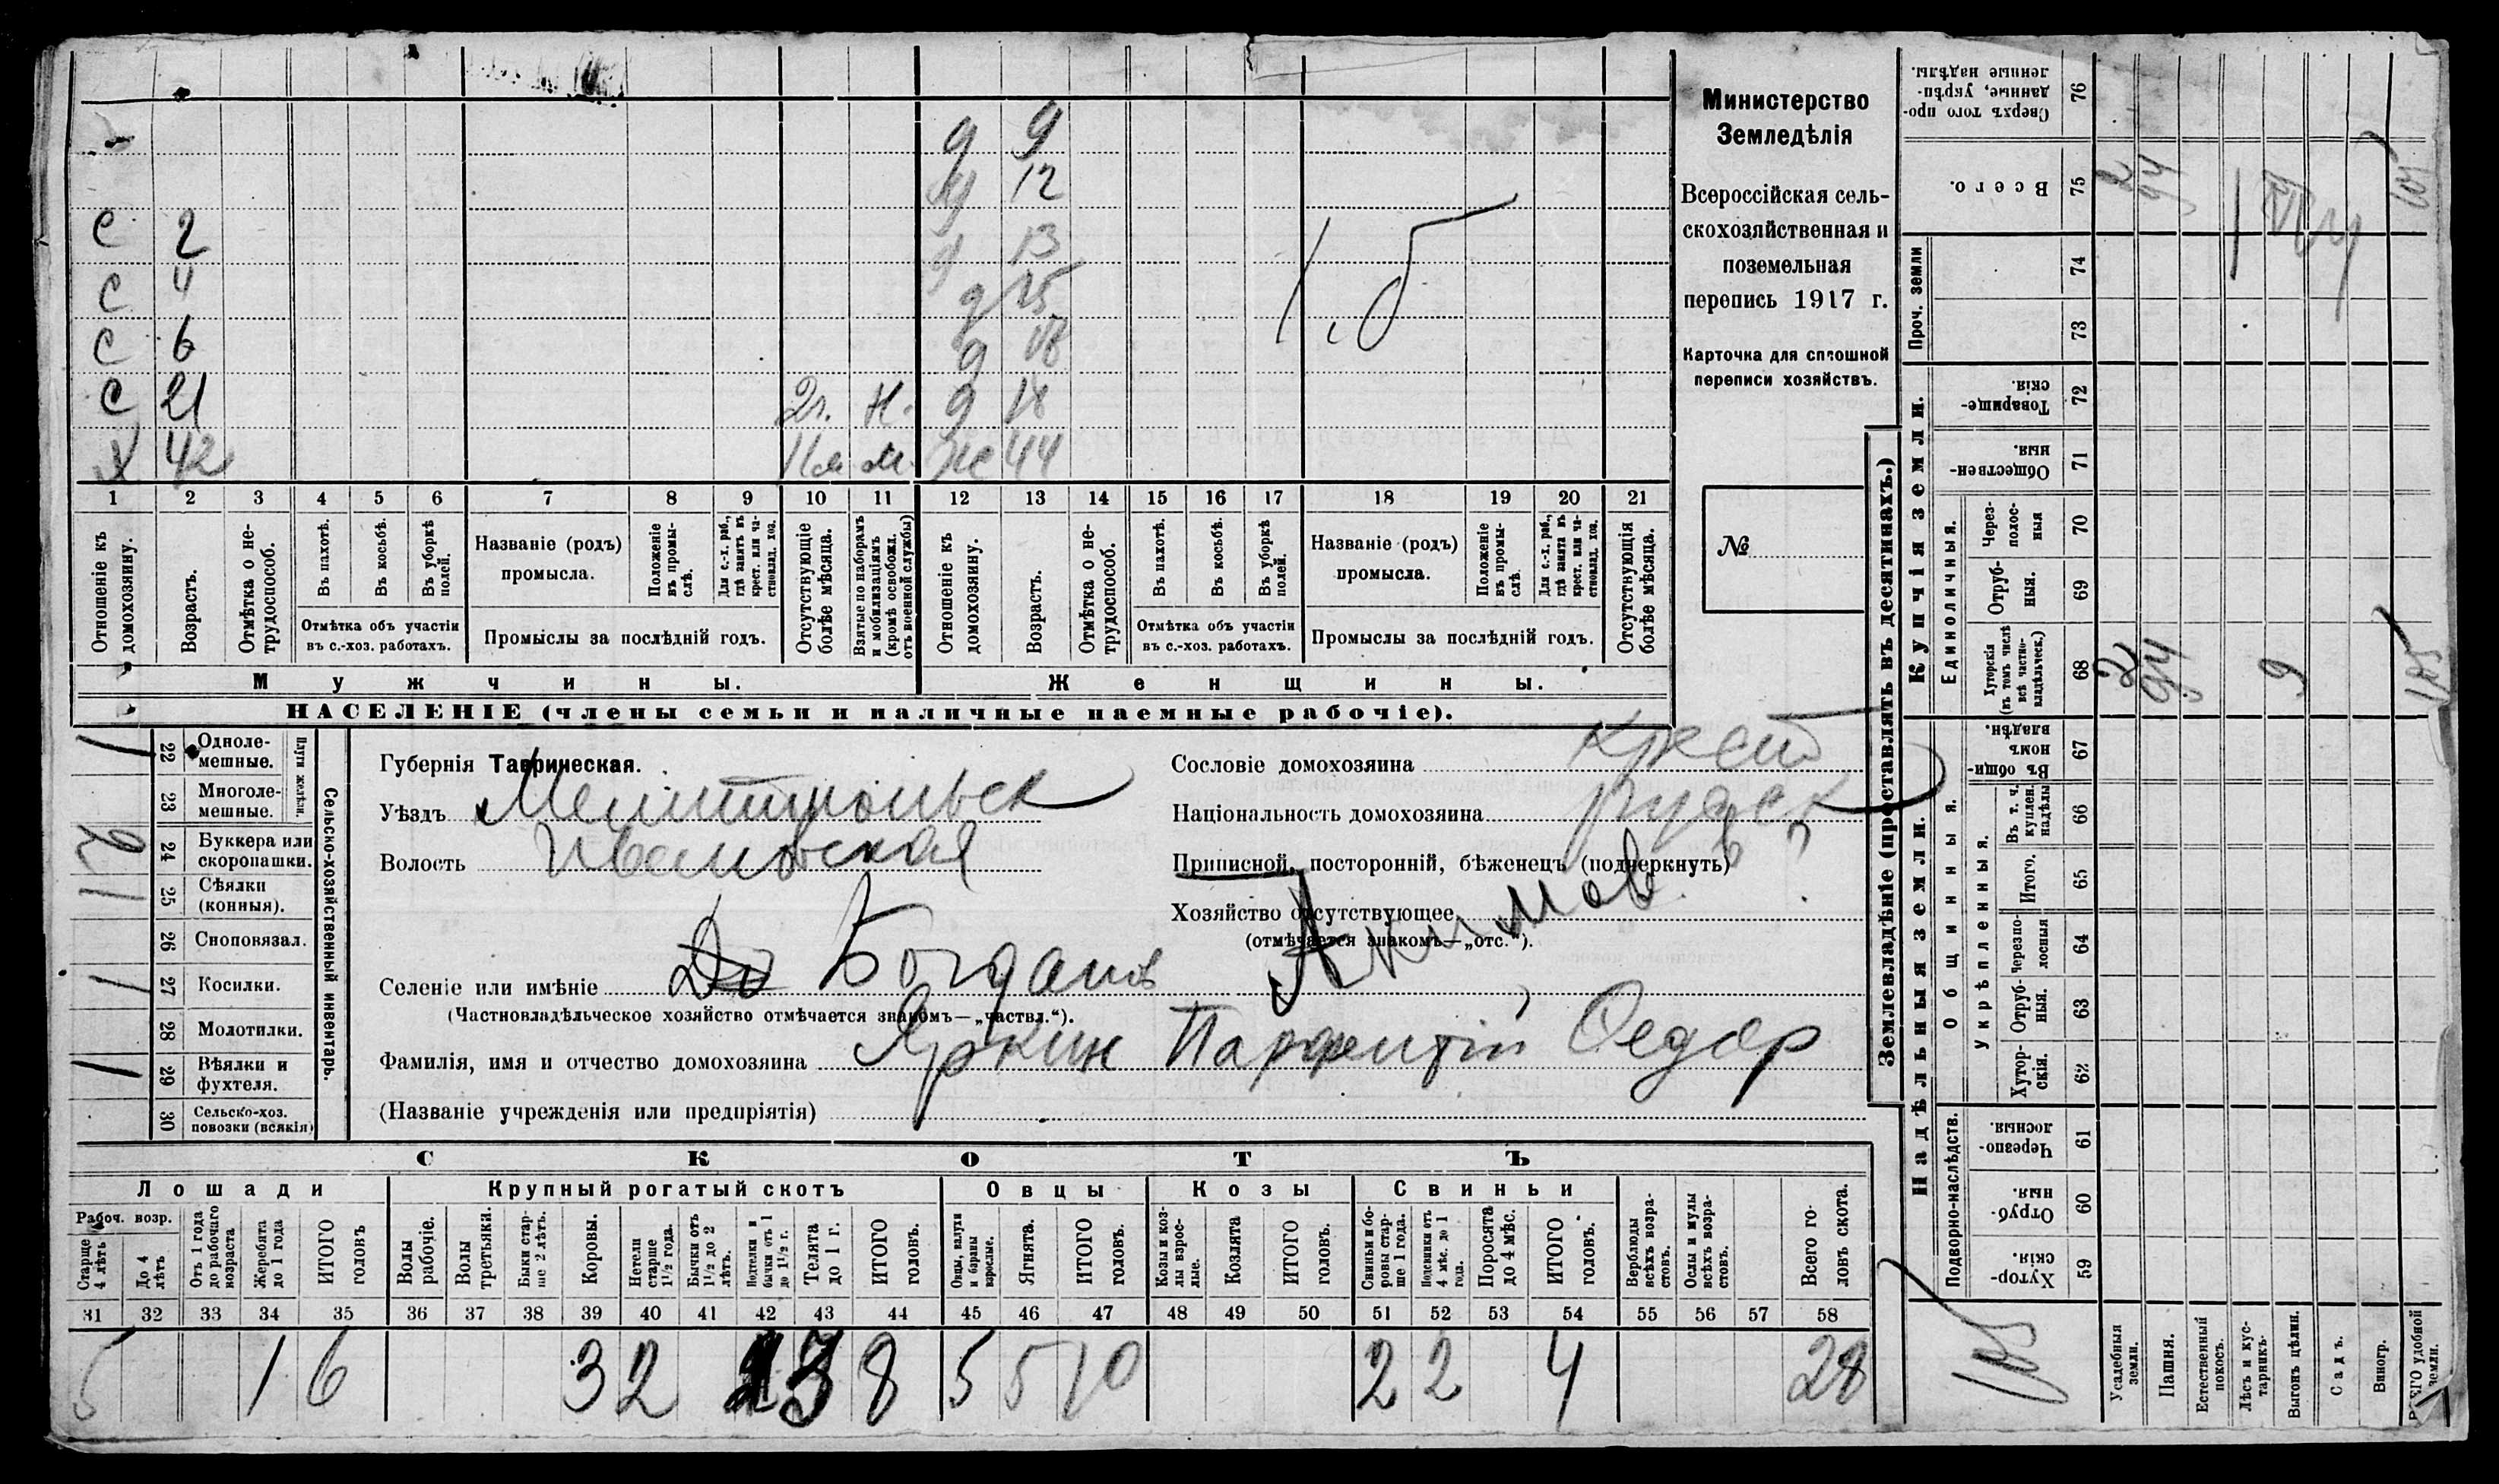 Министерство
Земледѣлія
Всероссійская сель-
скохозяйственная и
поземельная
перепись 1917 г.
Карточка для сплошной
переписи хозяйствъ.
№
д 9
12
С 2 13
С 4 д 15
С 6 д
С 21 2 г. н. д 18
Х 42 м. ж 44
1 2 3 4 5 6 7 8 9 10 11 12 13 14 15 16 17 18 19 20 21
Отношеніе къ домохозяину.
Возрастъ.
Отмѣтка о не-трудоспособ.
Въ пахотѣ.
Въ косьбѣ.
Въ уборкѣ полей.
Отмѣтка объ участіи въ с.-хоз. работахъ.
Названіе (родъ) промысла.
Положеніе въ промы-слѣ.
Для с.-х. раб., гдѣ занятъ въ крест. или ча-стновлад. хоз.
Промыслы за послѣдній годъ.
Отсутствующіе болѣе мѣсяца.
Взятые по наборамъ и мобилизаціямъ (кромѣ освобожд. отъ военной службы)
Отношеніе къ домохозяину.
Возрастъ.
Отмѣтка о не-трудоспособ.
Въ пахотѣ.
Въ косьбѣ.
Въ уборкѣ полей.
Отмѣтка объ участіи въ с.-хоз. работахъ.
Названіе (родъ) промысла.
Положеніе въ промы-слѣ.
Для с.-х. раб., гдѣ занята въ крест. или ча-стновлад. хоз.
Промыслы за послѣдній годъ.
Отсутствующія болѣе мѣсяца.
Мужчины. Женщины.
НАСЕЛЕНІЕ (члены семьи и наличные наемные рабочіе).
Сельско-хозяйственный инвентарь.
Плуги желѣзн.
22 Одноле-мешные. 1
23 Многоле-мешные.
24 Буккера или скоропашки.
25 Сѣялки (конныя). 1
26 Сноповязал.
27 Косилки. 1
28 Молотилки.
29 Вѣялки и фухтеля. 1
30 Сельско-хоз. повозки (всякія)
Губернія Таврическая.
Уѣздъ Мелитопольск
Волость Ивановская
Селеніе или имѣніе Богданов
(Частновладѣльческое хозяйство отмѣчается знакомъ—„частвл.“).
Фамилія, имя и отчество домохозяина Яркин Парфентій Федор
(Названіе учрежденія или предпріятія)
Сословіе домохозяина крест
Національность домохозяина русск
Приписной, посторонній, бѣженецъ (подчеркнуть)
Хозяйство отсутствующее
(отмѣчается знакомъ—„отс.“).
Акимов
СКОТЪ
Лошади Крупный рогатый скотъ Овцы Козы Свиньи
Рабоч. возр.
Старше 4 лѣтъ
До 4 лѣтъ
Отъ 1 года до рабочаго возраста
Жеребята до 1 года
ИТОГО головъ
Волы рабочіе.
Волы третьяки.
Быки стар-ше 2 лѣтъ.
Коровы.
Нетели старше 1½ года.
Бычки отъ 1½ до 2 лѣтъ.
Подтелки и бычки отъ 1 до 1½ г.
Телята до 1 г.
ИТОГО головъ.
Овцы, валухи и бараны взрослые.
Ягнята.
ИТОГО головъ.
Козы и коз-лы взрос-лые.
Козлята
ИТОГО головъ.
Свиньи и бо-ровы стар-ше 1 года.
Подсвинки отъ 4 мѣс. до 1 года.
Поросята до 4 мѣс.
ИТОГО головъ.
Верблюды всѣхъ возра-стовъ.
Ослы и мулы всѣхъ возра-стовъ.
Всего го-ловъ скота.
31 32 33 34 35 36 37 38 39 40 41 42 43 44 45 46 47 48 49 50 51 52 53 54 55 56 57 58
5 1 6 3 2 3 8 5 5 10 2 2 4 28
Землевладѣніе (проставлять въ десятинахъ.)
Надѣльныя земли. Купчія земли. Проч. земли
Подворно-наслѣдств.
Общинныя.
Укрѣпленныя.
Единоличныя.
59 Хутор-скія.
60 Отруб-ныя.
61 Черезпо-лосныя.
62 Хутор-скія.
63 Отруб-ныя.
64 Черезпо-лосныя
65 Итого.
66 Въ т. ч. куплен. надѣлы
67 Въ общи-номъ владѣн.
68 Хуторскія (въ томъ числѣ всѣ частно-владѣльческ.) 2 94 9 105
69 Отруб-ныя.
70 Через-полос-ныя
71 Обществен-ныя.
72 Товарище-скія.
73
74
75 Всего. 2 94
76 Сверхъ того про-данные, укрѣп-ленные надѣлы.
Усадебныя земли.
Пашня.
Естественный покосъ.
Лѣсъ и кус-тарникъ.
Выгонъ цѣлин.
Садъ.
Виногр.
ВСЕГО удобной земли.